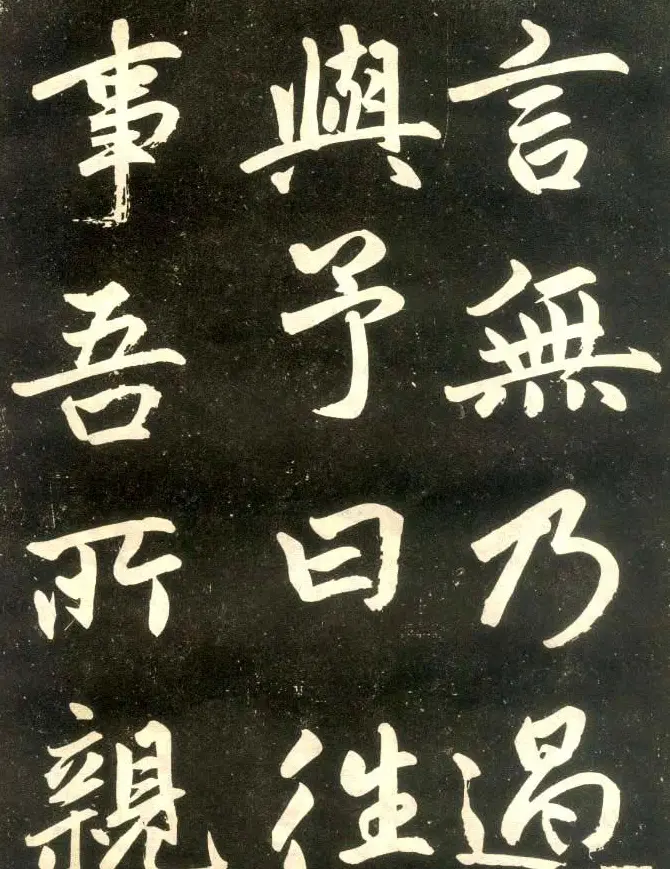 言無乃過
與予曰往
事吾所親